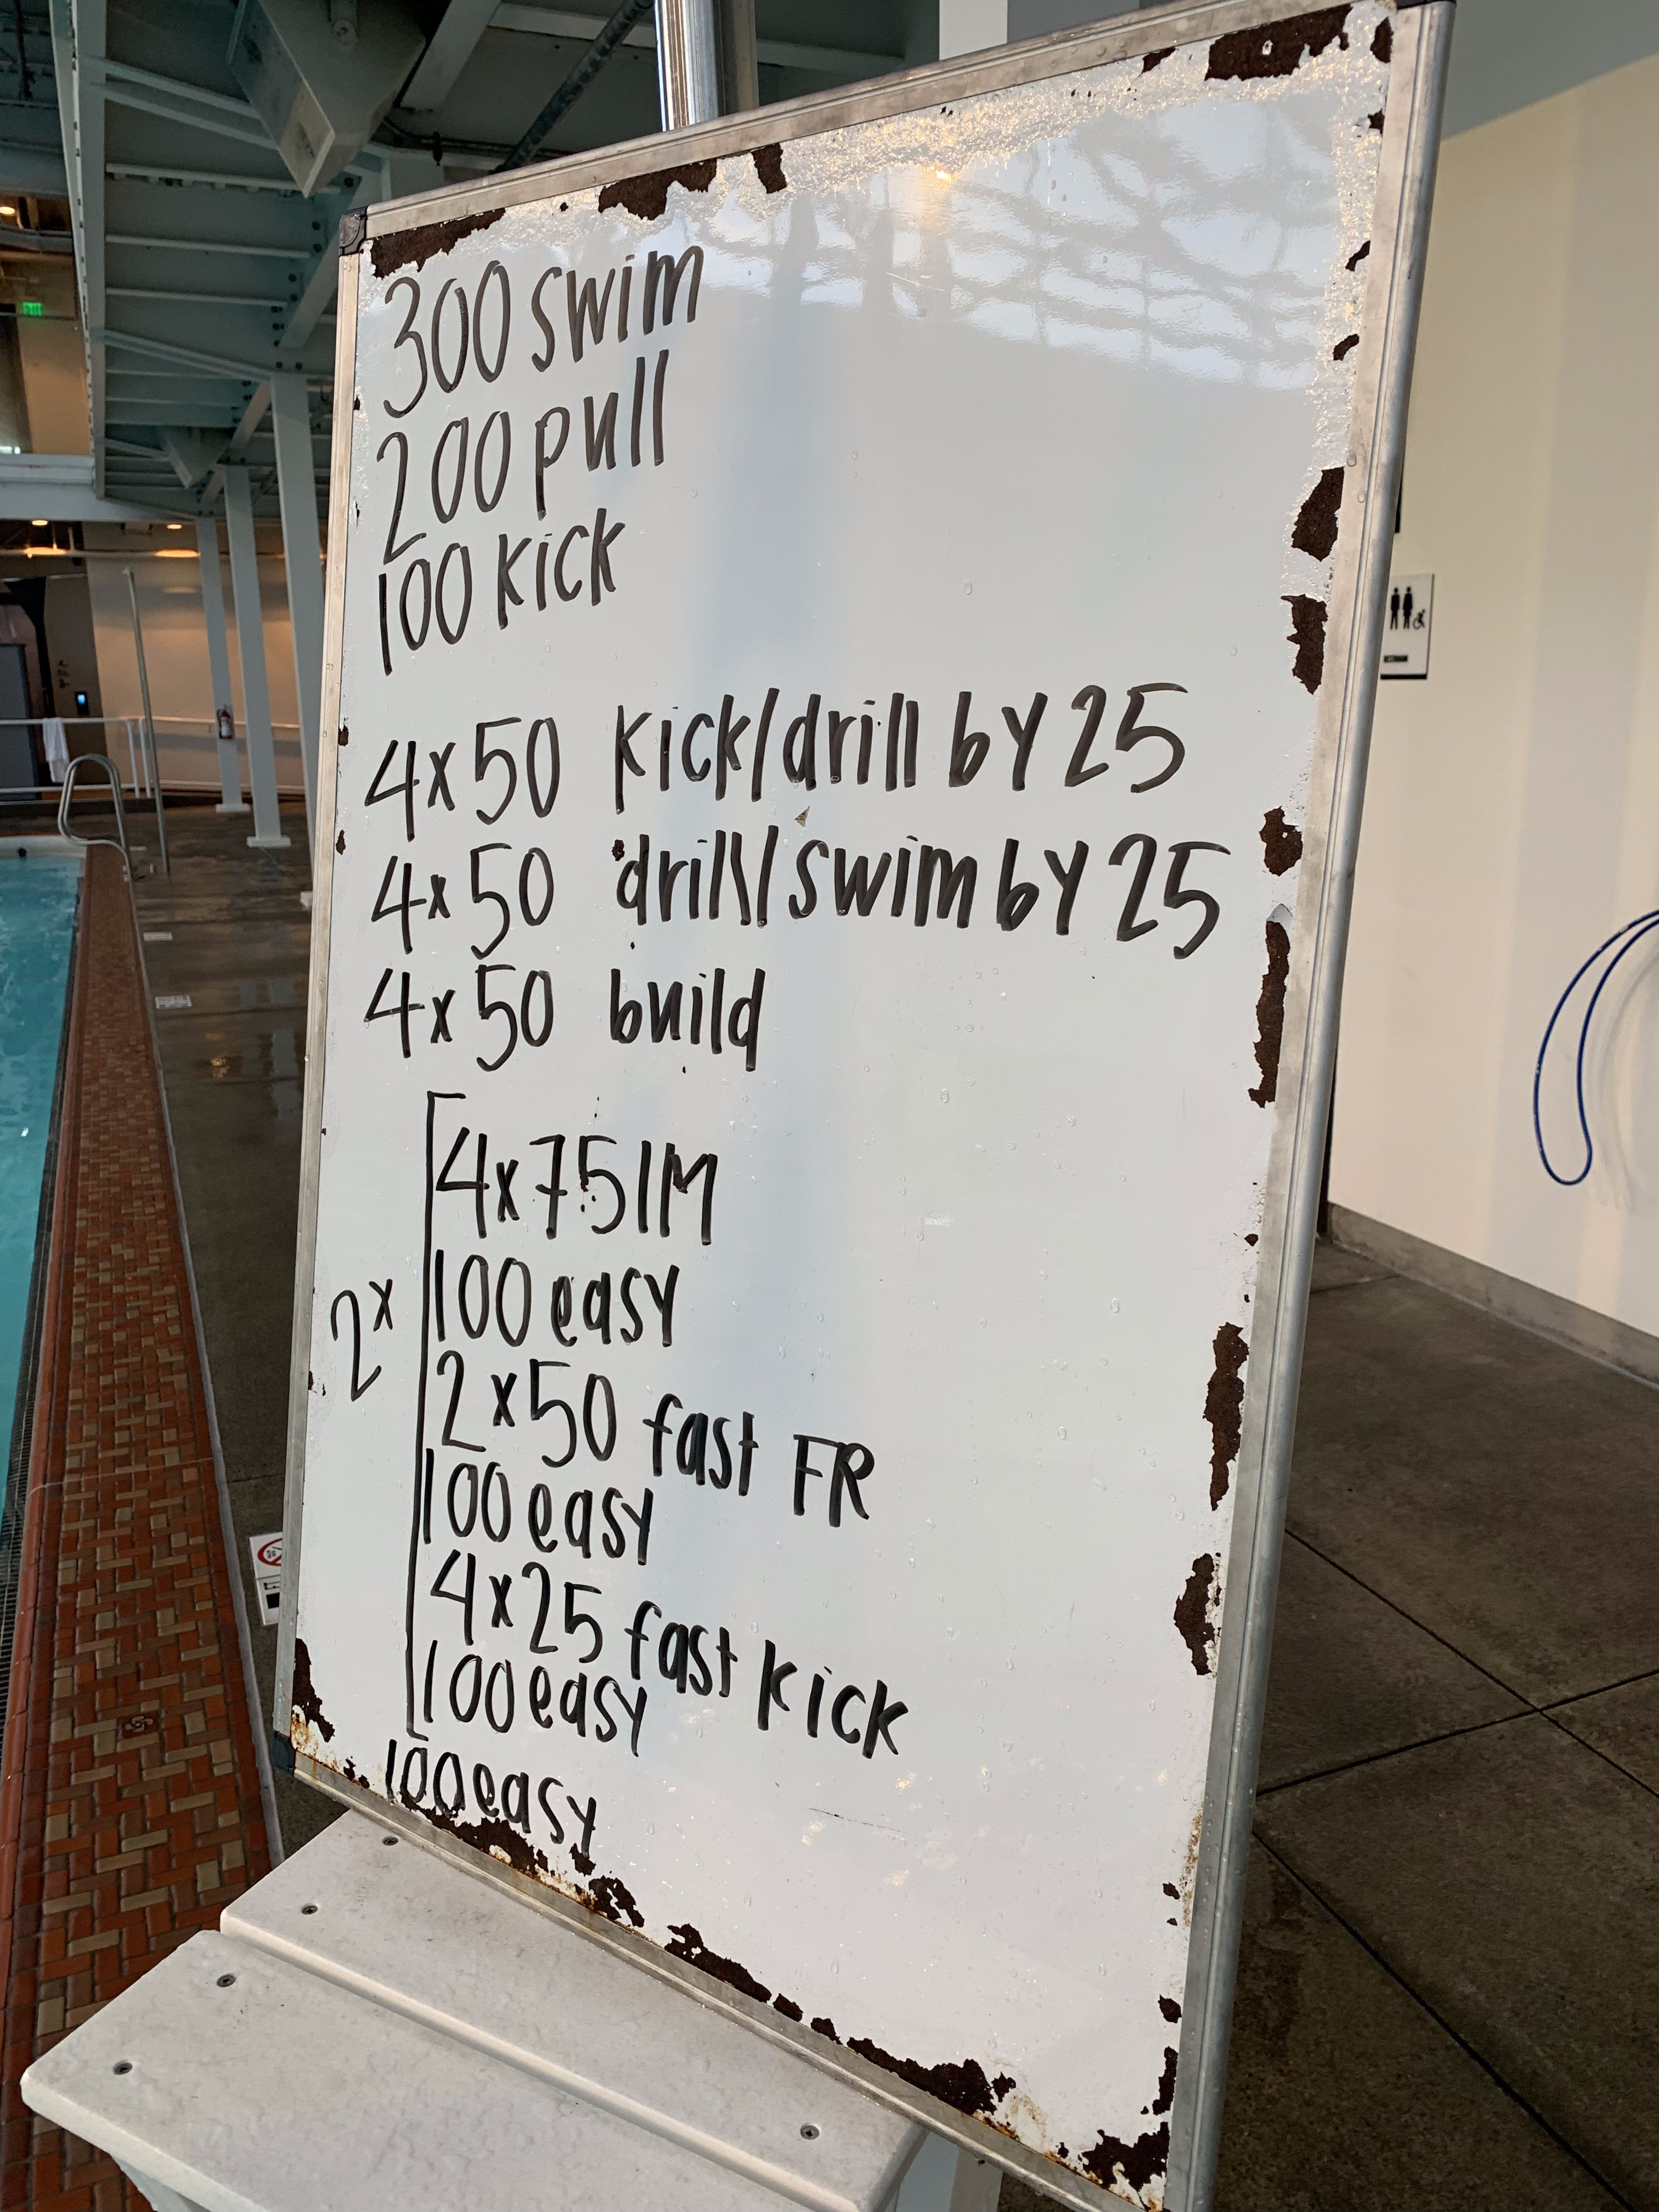 300 swim
200 pull
100 kick
4x50 kick/drill by 25
4x50 drill/swim by 25
4x50 build
4x75 IM
100 easy
2x
2x50 fast FR
100 easy
4x25 fast kick
100 easy
100 easy
EXIT